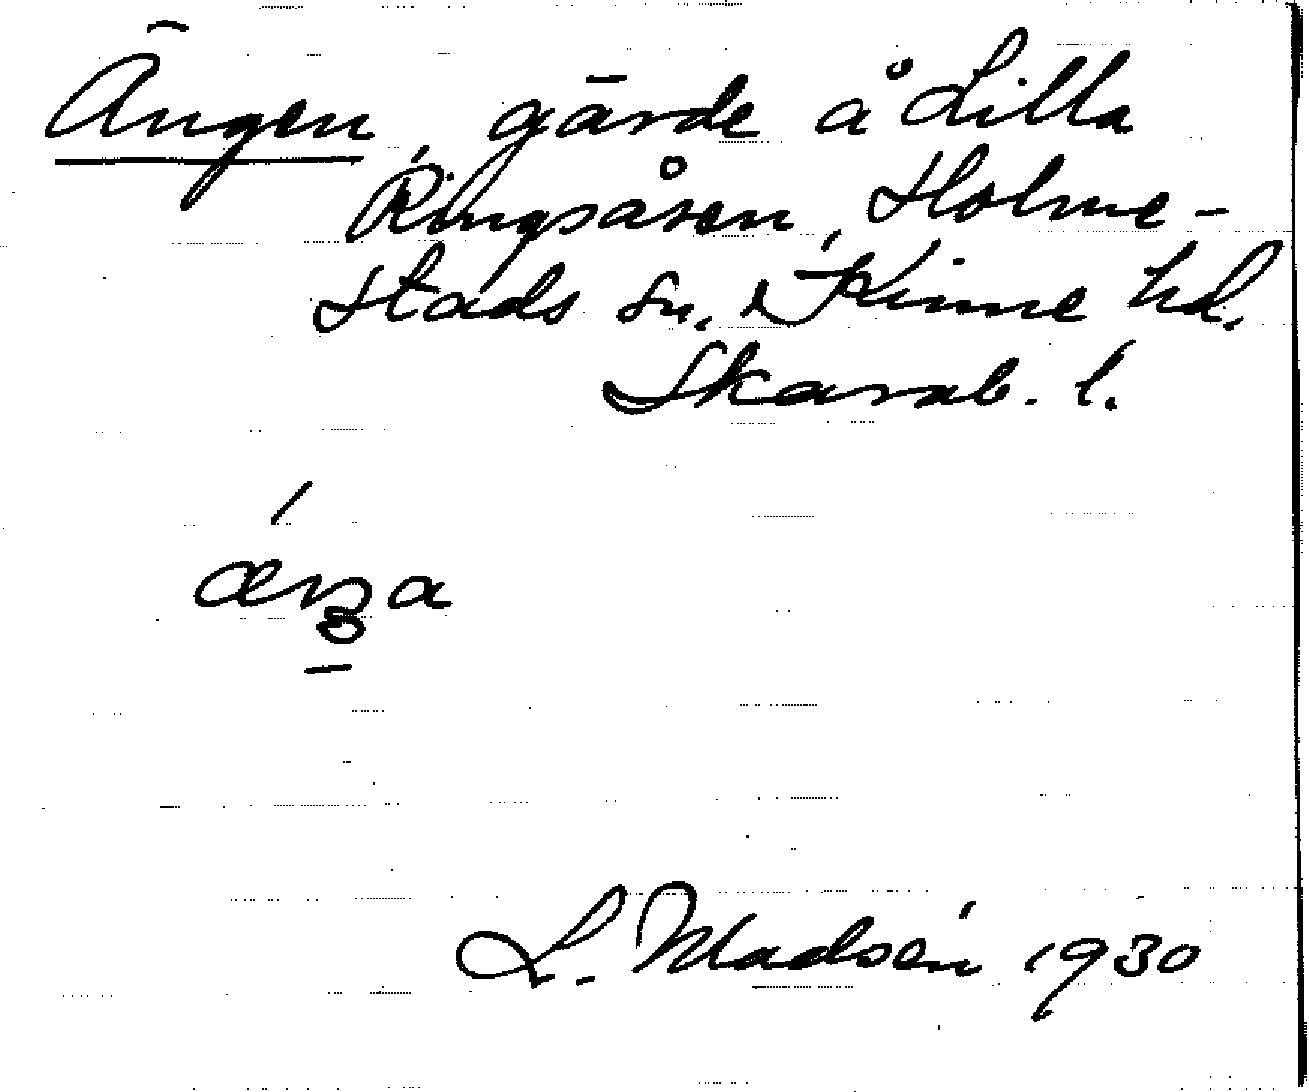 Ängen, gärde å Lilla
Ringsåsen, Holme-
stads sn, Kinne hd.
Skarab. l.
L. Madsén 1930